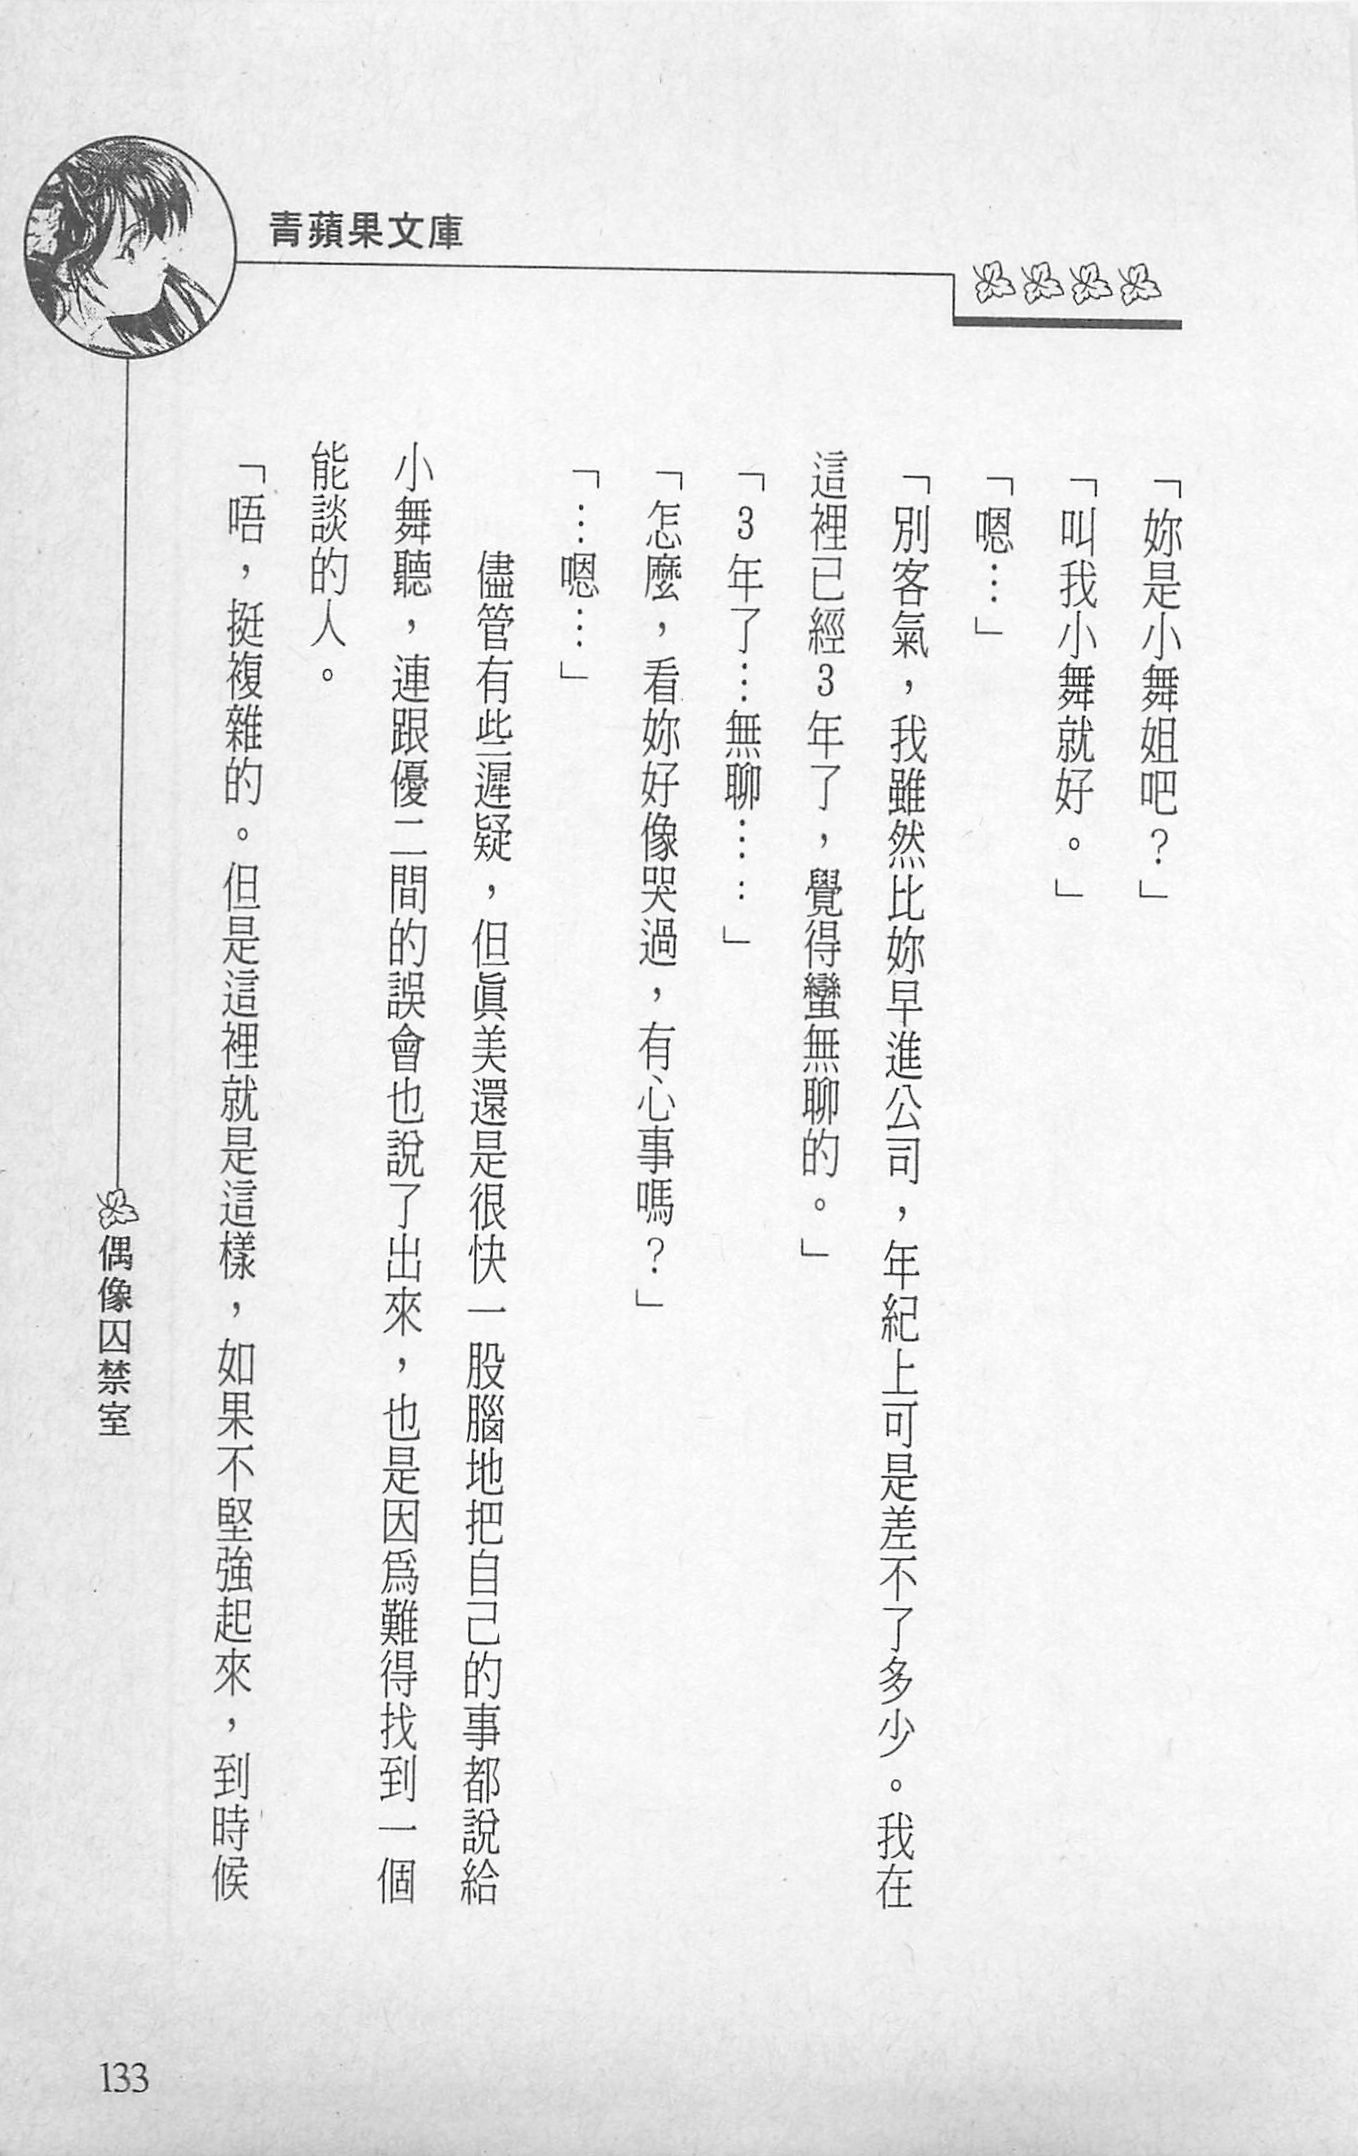 青蘋果文庫
「妳是小舞姐吧？」
「叫我小舞就好。」
「嗯…」
「別客氣，我雖然比妳早進公司，年紀上可是差不了多少。我在
這裡已經3年了，覺得蠻無聊的。」
「3年了…無聊……」
「怎麼，看妳好像哭過，有心事嗎？」
「…嗯…」
儘管有些遲疑，但眞美還是很快一股腦地把自己的事都說給
小舞聽，連跟優二間的誤會也說了出來，也是因爲難得找到一個
能談的人。
「唔，挺複雜的。但是這裡就是這樣，如果不堅強起來，到時候
偶像囚禁室
133